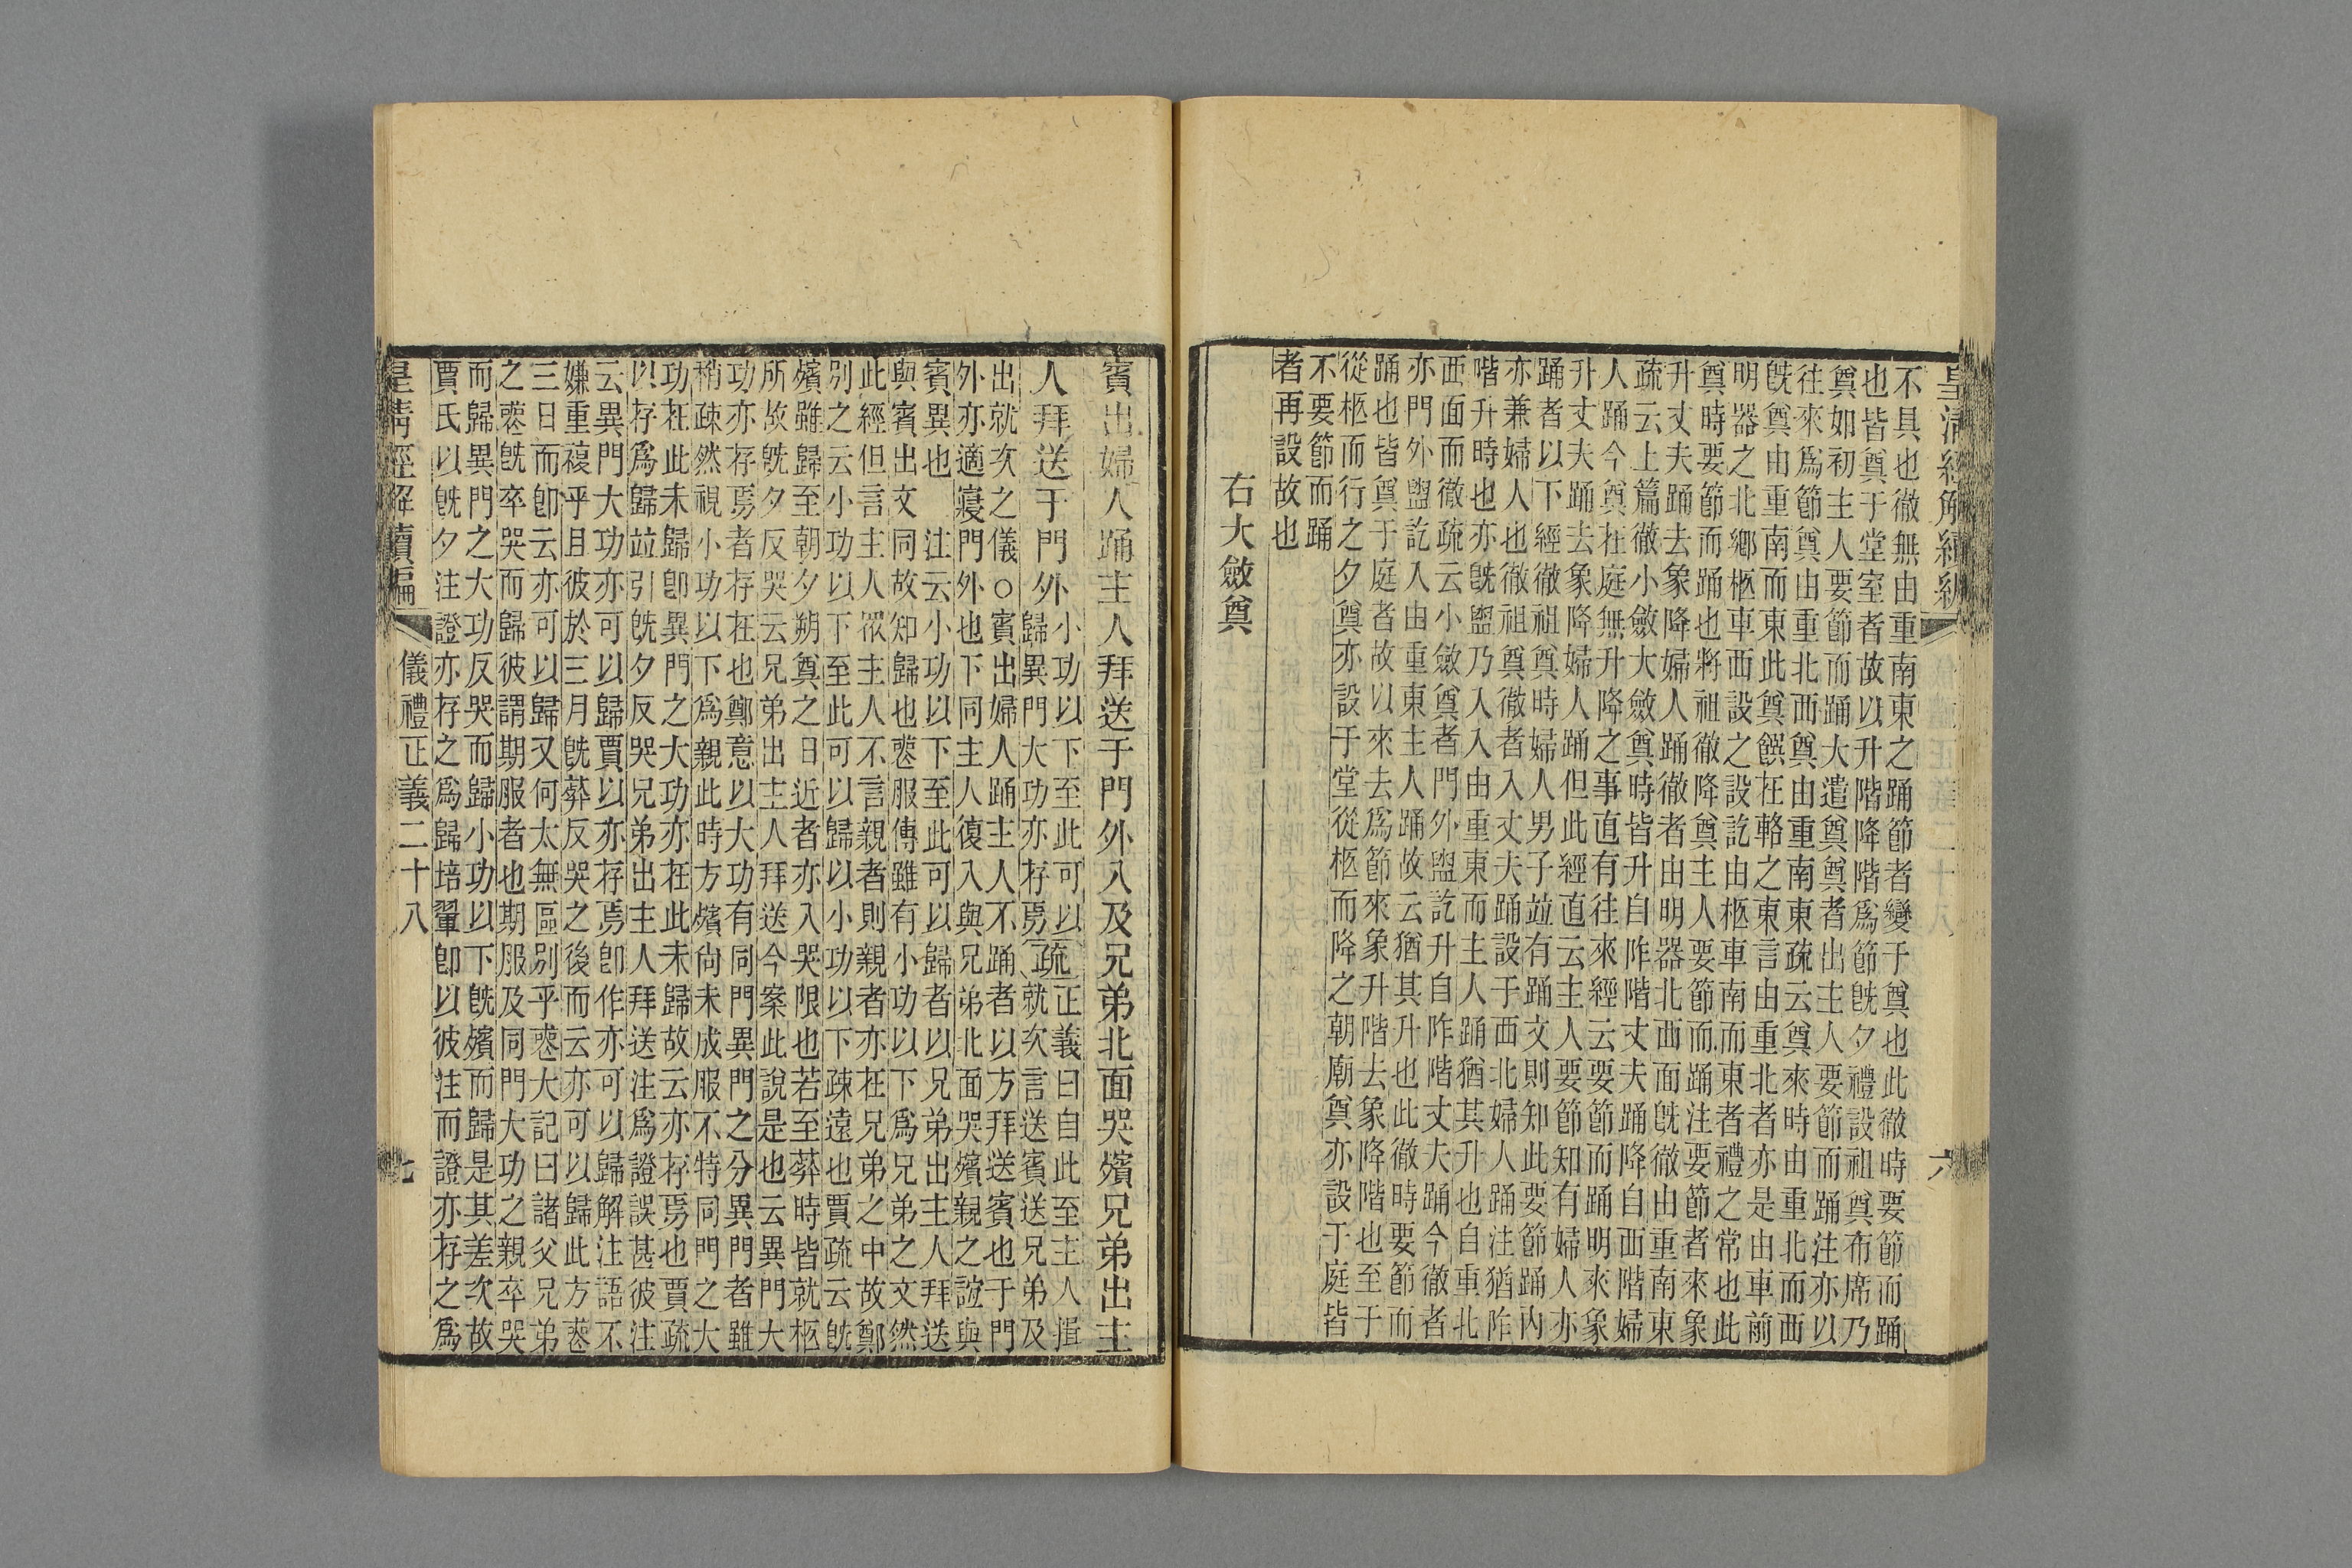 皇清經解續編
六
不具也徹無由重南東之踊節者變于奠也此徹時要節而踊
也皆奠于堂室者故以升階降階爲節旣夕禮設祖奠布席乃
奠如初主人要節而踊大遣奠奠者出主人要節而踊注亦以
往來爲節奠由重北西奠由重南東疏云奠來時由重北而西
旣奠由重南而東此奠饌在輅之東言由重北者亦是由車前
明器之北鄉柩車西設之設訖由柩車南而東者禮之常也此
奠時要節而踊也將祖徹降奠主人要節而踊注要節者來象
升丈夫踊去象降婦人踊徹者由明器北西面旣徹由重南東
疏云上篇徹小斂大斂奠時皆升自阼階丈夫踊降自西階婦
人踊今奠在庭無升降之事直有往來經云要節而踊明來象
升丈夫踊去象降婦人踊但此經直云主人要節知有婦人亦
踊者以下經徹祖奠時婦人男子竝有踊文則知此要節踊內
亦兼婦人也徹祖奠徹者入丈夫踊設于西北婦人踊注猶阼
階升時也亦旣盥乃入入由重東而主人踊猶其升也自重北
西面而徹疏云小斂奠者門外盥訖升自阼階丈夫踊今徹者
亦門外盥訖入由重東主人踊故云猶其升也此徹時要節而
踊也皆奠于庭者故以來去爲節來象升階去象降階也至于
從柩而行之夕奠亦設于堂從柩而降之朝廟奠亦設于庭皆
不要節而踊
者再設故也
右大斂奠
賓出婦人踊主人拜送于門外入及兄弟北面哭殯兄弟出主
人拜送于門外
小功以下至此可以
歸異門大功亦存焉
疏
正義曰自此至主人揖
就次言送賓送兄弟及
出就次之儀○賓出婦人踊主人不踊者以方拜送賓也于門
外亦適寢門外也下同主人復入與兄弟北面哭殯親之誼與
賓異也　注云小功以下至此可以歸者以兄弟出主人拜送
與賓出文同故知歸也喪服傳雖有小功以下爲兄弟之文然
此經但言主人眾主人不言親者則親者亦在兄弟之中故鄭
別之云小功以下至此可以歸以小功以下疎遠也賈疏云旣
殯雖歸至朝夕朔奠之日近者亦入哭限也若至葬時皆就柩
所故旣夕反哭云兄弟出主人拜送今案此說是也云異門大
功亦存焉者存在也鄭意以大功有同門異門之分異門者雖
稍疎然視小功以下爲親此時方殯尙未成服不特同門之大
功在此未歸卽異門之大功亦在此未歸故云亦存焉也賈疏
以存爲歸竝引旣夕反哭兄弟出主人拜送注爲證誤甚彼注
云異門大功亦可以歸賈以亦存焉卽作亦可以歸解注語不
嫌重複乎且彼於三月旣葬反哭之後而云亦可以歸此方喪
三日而卽云亦可以歸又何太無區別乎喪大記曰諸父兄弟
之喪旣卒哭而歸彼謂期服者也期服及同門大功之親卒哭
而歸異門之大功反哭而歸小功以下旣殯而歸是其差次故
賈氏以旣夕注證亦存之爲歸培翬卽以彼注而證亦存之爲
皇清經解續編
儀禮正義二十八
七